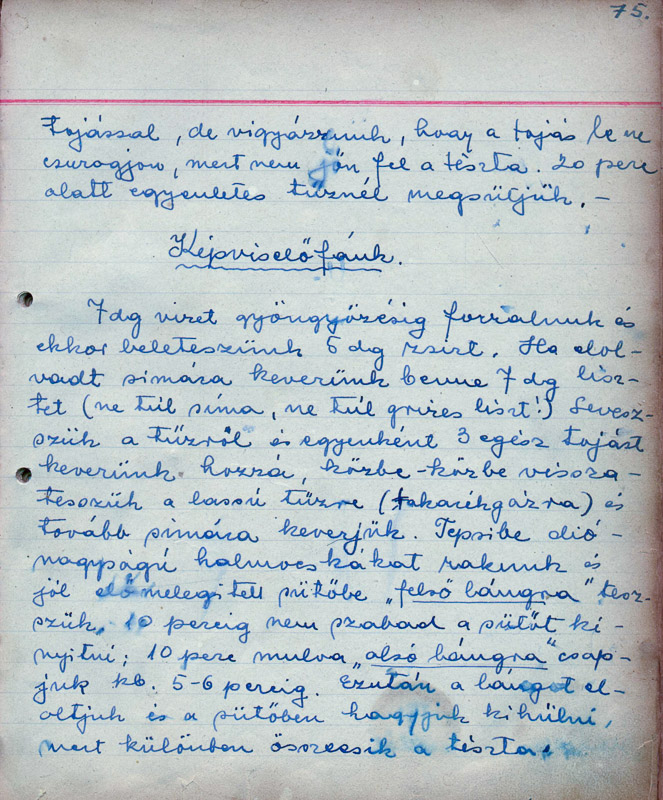 75.
tojással, de vigyázzunk, hogy a tojás le ne
csurogjon, mert nem jön fel a tészta. 20 perc
alatt egyenletes tűznél megsütjük. –
Képviselőfánk.
7 dg vizet gyöngyözésig forralnunk és
ekkor beleteszünk 5 dg zsirt. Ha elol-
vadt simára keverünk benne 7 dg lisz-
tet (ne túl síma, ne túl grizes liszt!) Levesz-
szük a tűzről és egyenként 3 egész tojást
keverünk hozzá, közbe-közbe vissza-
tesszük a lassú tűzre (takarékgázra) és
tovább simára keverjük. Tepsibe dió-
nagyságú halmocskákat rakunk és
jól előmelegitett sütőbe „felső lángra" tesz-
szük. 10 percig nem szabad a sütőt ki-
nyitni; 10 perc mulva „alsó lángra" csap-
juk kb. 5-6 percig. Ezután a lángot el-
oltjuk és a sütőben hagyjuk kihülni,
mert különben összeesik a tészta.